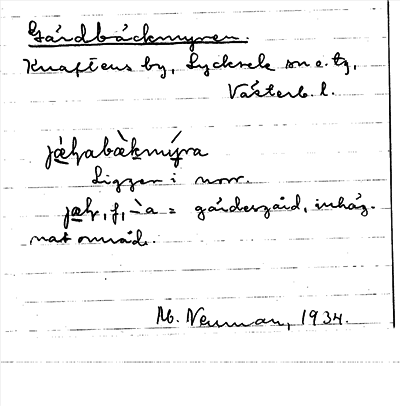 Gårdbäckmyren.
Knaftens by, Lycksele sn o. tg,
Västerb. l.
Ligger i norr.
f, -a = gärdesgård, inhäg-
nat område.
M. Neuman, 1934.